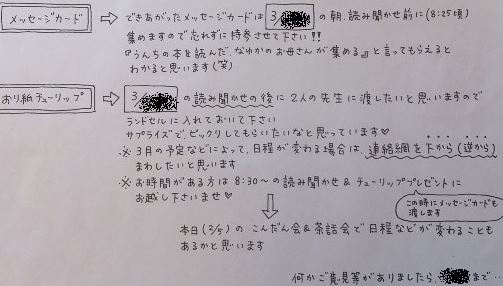 メッセージカード → できあがったメッセージカードは 3/ の朝、読み聞かせ前に(8:25頃)
集めますので忘れずに持参させて下さい!!
『うんちの本を読んだ、なゆかのお母さんが集める』と言ってもらえると
わかると思います(笑)
おり紙チューリップ → 3/ の読み聞かせの後に2人の先生に渡したいと思いますので
ランドセルに入れておいて下さい
サプライズで、ビックリしてもらいたいなと思っています♡
※ 3月の予定などによって、日程が変わる場合は、連絡網を下から(逆から)
まわしたいと思います
※ お時間がある方は 8:30〜の読み聞かせ & チューリッププレゼントに
お越し下さいませ♡
この時にメッセージカードも
渡します
本日(3/5)の こんだん会&茶話会で日程などが変わることも
あるかと思います
何かご意見等がありましたら、 まで…